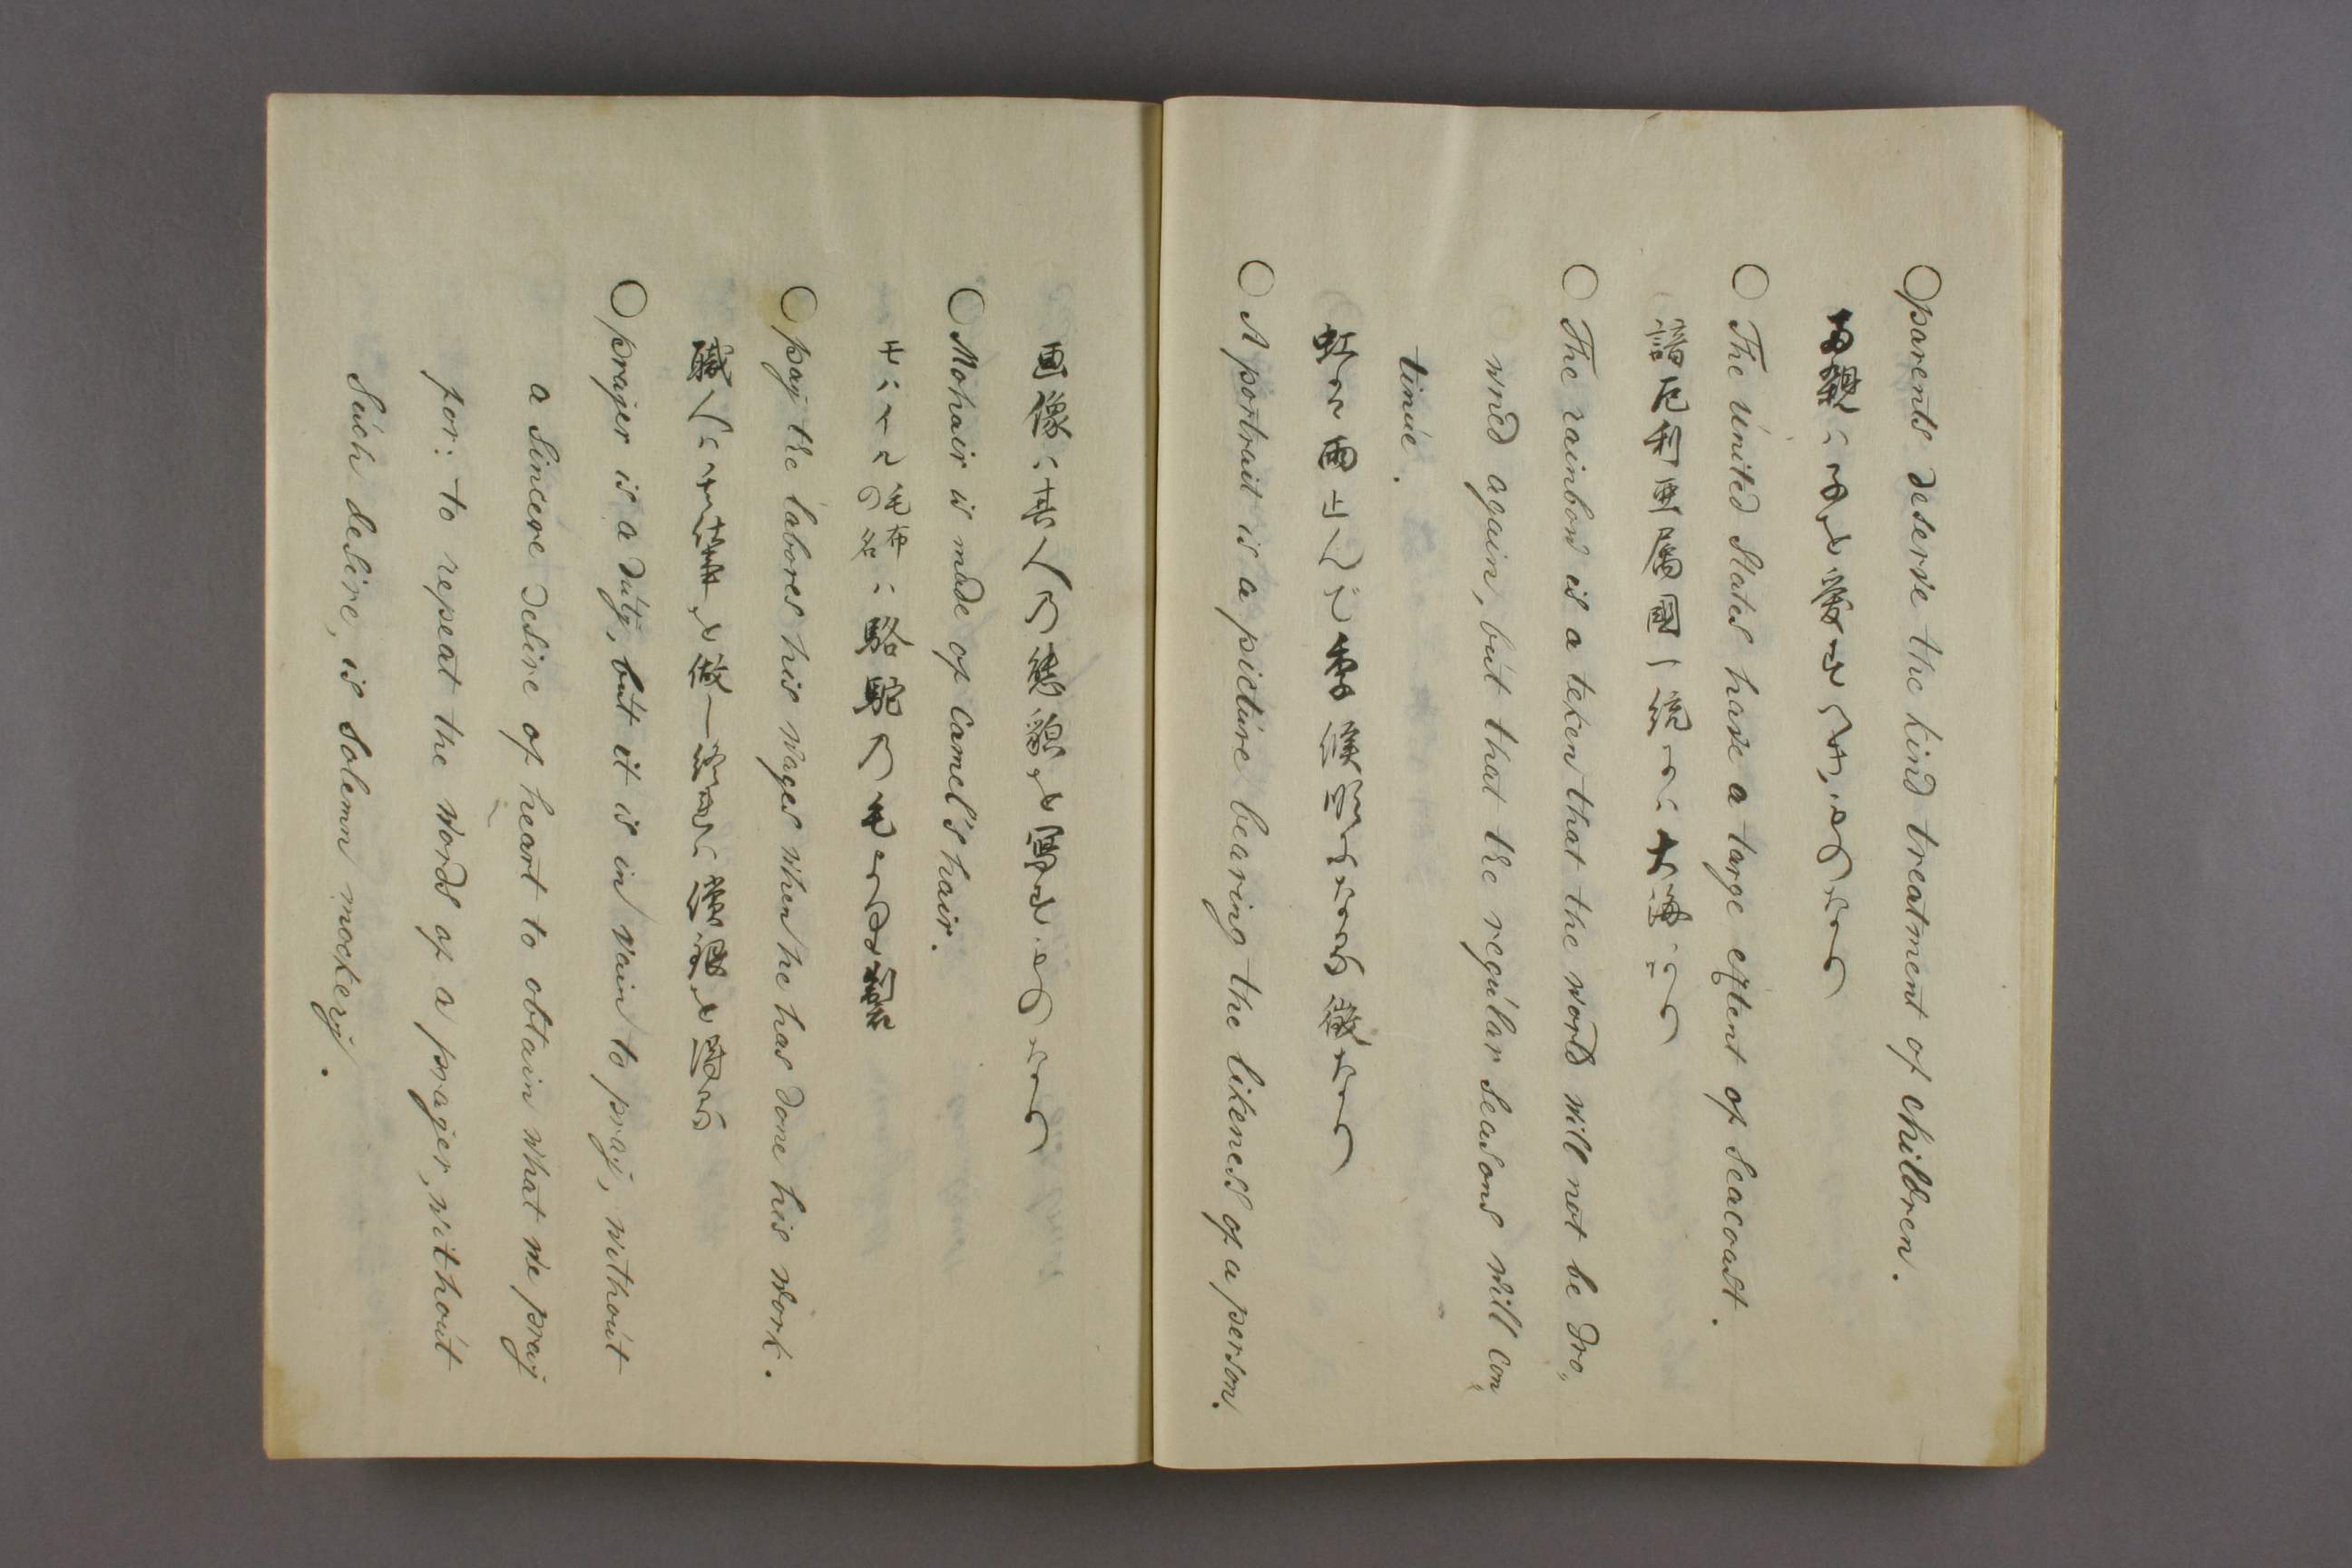 ○parents deserve the kind treatment of children.
両親ハ子を愛す
○The united States have a large extent of Seacoast.
諳厄利亜属國一統の大海
○The rainbow is a teken that the world will not be dro„
wned again, but that the regular Seasons will con„
tinue.
虹は雨止んで季候順なる徴なり
○A portrait is a picture bearing the likeness of a person.
画像ハ其人の貌を寫すものなり
○Mohair is made of Camel's hair.
モハイル毛布の名ハ駱駝の毛より製
○pay the labores his wages when he has done his work.
職人ハ其仕事を做し終れハ償銀を得る
○prayer is a duty, but it is in vain to pray, without
a Sincere desire of heart to obtain what we pray
for: to repeat the words of a prayer, without
Such desire, is Solemn mockery.